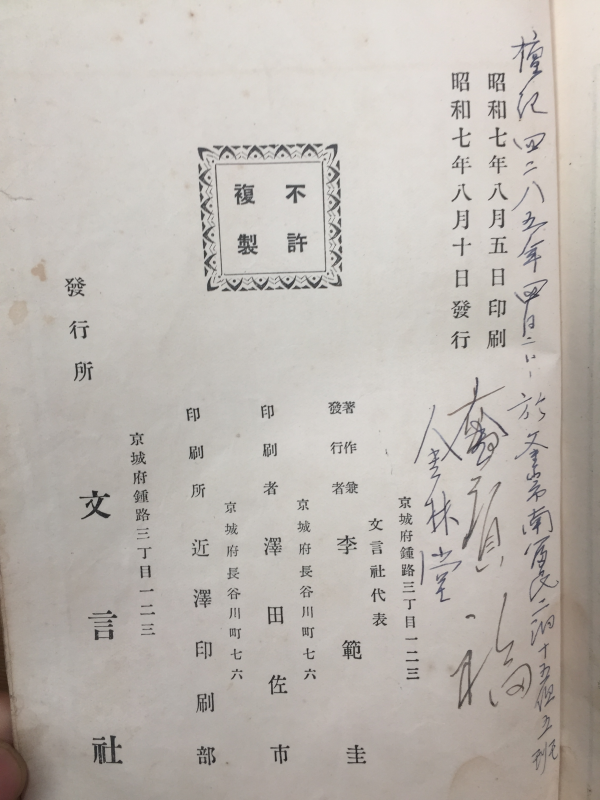 檀紀四二八五年四月二
昭和七年八月五日印刷
昭和七年八月十日發行
不許
複製
京城府鍾路三丁目一二三
文言社代表
著作兼
發行者
李範圭
京城府長谷川町七六
印刷者
澤田佐市
京城府長谷川町七六
印刷所
近澤印刷部
京城府鍾路三丁目一二三
發行所
文言社